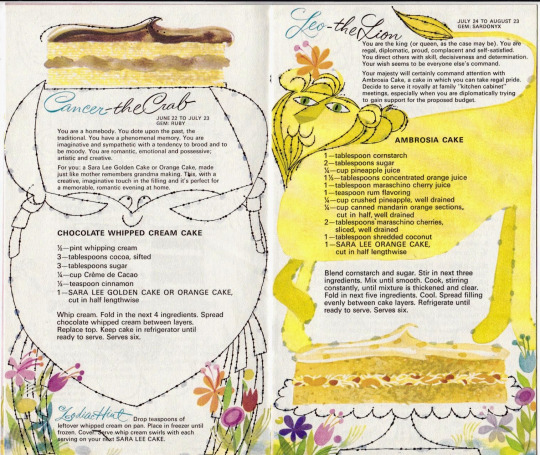 Cancer-the Crab
JUNE 22 TO JULY 23
GEM: RUBY
You are a homebody. You dote upon the past, the
traditional. You have a phenomenal memory. You are
imaginative and sympathetic with a tendency to brood and to
be moody; you are romantic, emotional and possessive;
artistic and creative.
For you: a Sara Lee Golden Cake or Orange Cake, made
just like mother remembers grandma making. This, with a
creative, imaginative touch in the filling and it's perfect for
a memorable, romantic evening at home.
CHOCOLATE WHIPPED CREAM CAKE
½—pint whipping cream
3—tablespoons cocoa, sifted
3—tablespoons sugar
¼—cup Crème de Cacao
½—teaspoon cinnamon
1—SARA LEE GOLDEN CAKE OR ORANGE CAKE,
cut in half lengthwise
Whip cream. Fold in the next 4 ingredients. Spread
chocolate whipped cream between layers.
Replace top. Keep cake in refrigerator until
ready to serve. Serves six.
Zodiac Hint
Drop teaspoons of
leftover whipped cream on pan. Place in freezer until
frozen. Cover. Serve whip cream swirls with each
serving on your next SARA LEE CAKE.
Leo-the Lion
JULY 24 TO AUGUST 23
GEM: SARDONYX
You are the king (or queen, as the case may be). You are
regal, diplomatic, proud, complacent and self-satisfied.
You direct others with skill, decisiveness and determination.
Your wish seems to be everyone else's command.
Your majesty will certainly command attention with
Ambrosia Cake, a cake in which you can take regal pride.
Decide to serve it royally at family "kitchen cabinet"
meetings, especially when you are diplomatically trying
to gain support for the proposed budget.
AMBROSIA CAKE
1—tablespoon cornstarch
2—tablespoons sugar
¼—cup pineapple juice
1½—tablespoons concentrated orange juice
1—tablespoon maraschino cherry juice
1—teaspoon rum flavoring
¼—cup crushed pineapple, well drained
¼—cup canned mandarin orange sections,
cut in half, well drained
2—tablespoons maraschino cherries,
sliced, well drained
1—tablespoon shredded coconut
1—SARA LEE ORANGE CAKE,
cut in half lengthwise
Blend cornstarch and sugar. Stir in next three
ingredients. Mix until smooth. Cook, stirring
constantly, until mixture is thickened and clear.
Fold in next five ingredients. Cool. Spread filling
evenly between cake layers. Refrigerate until
ready to serve. Serves six.